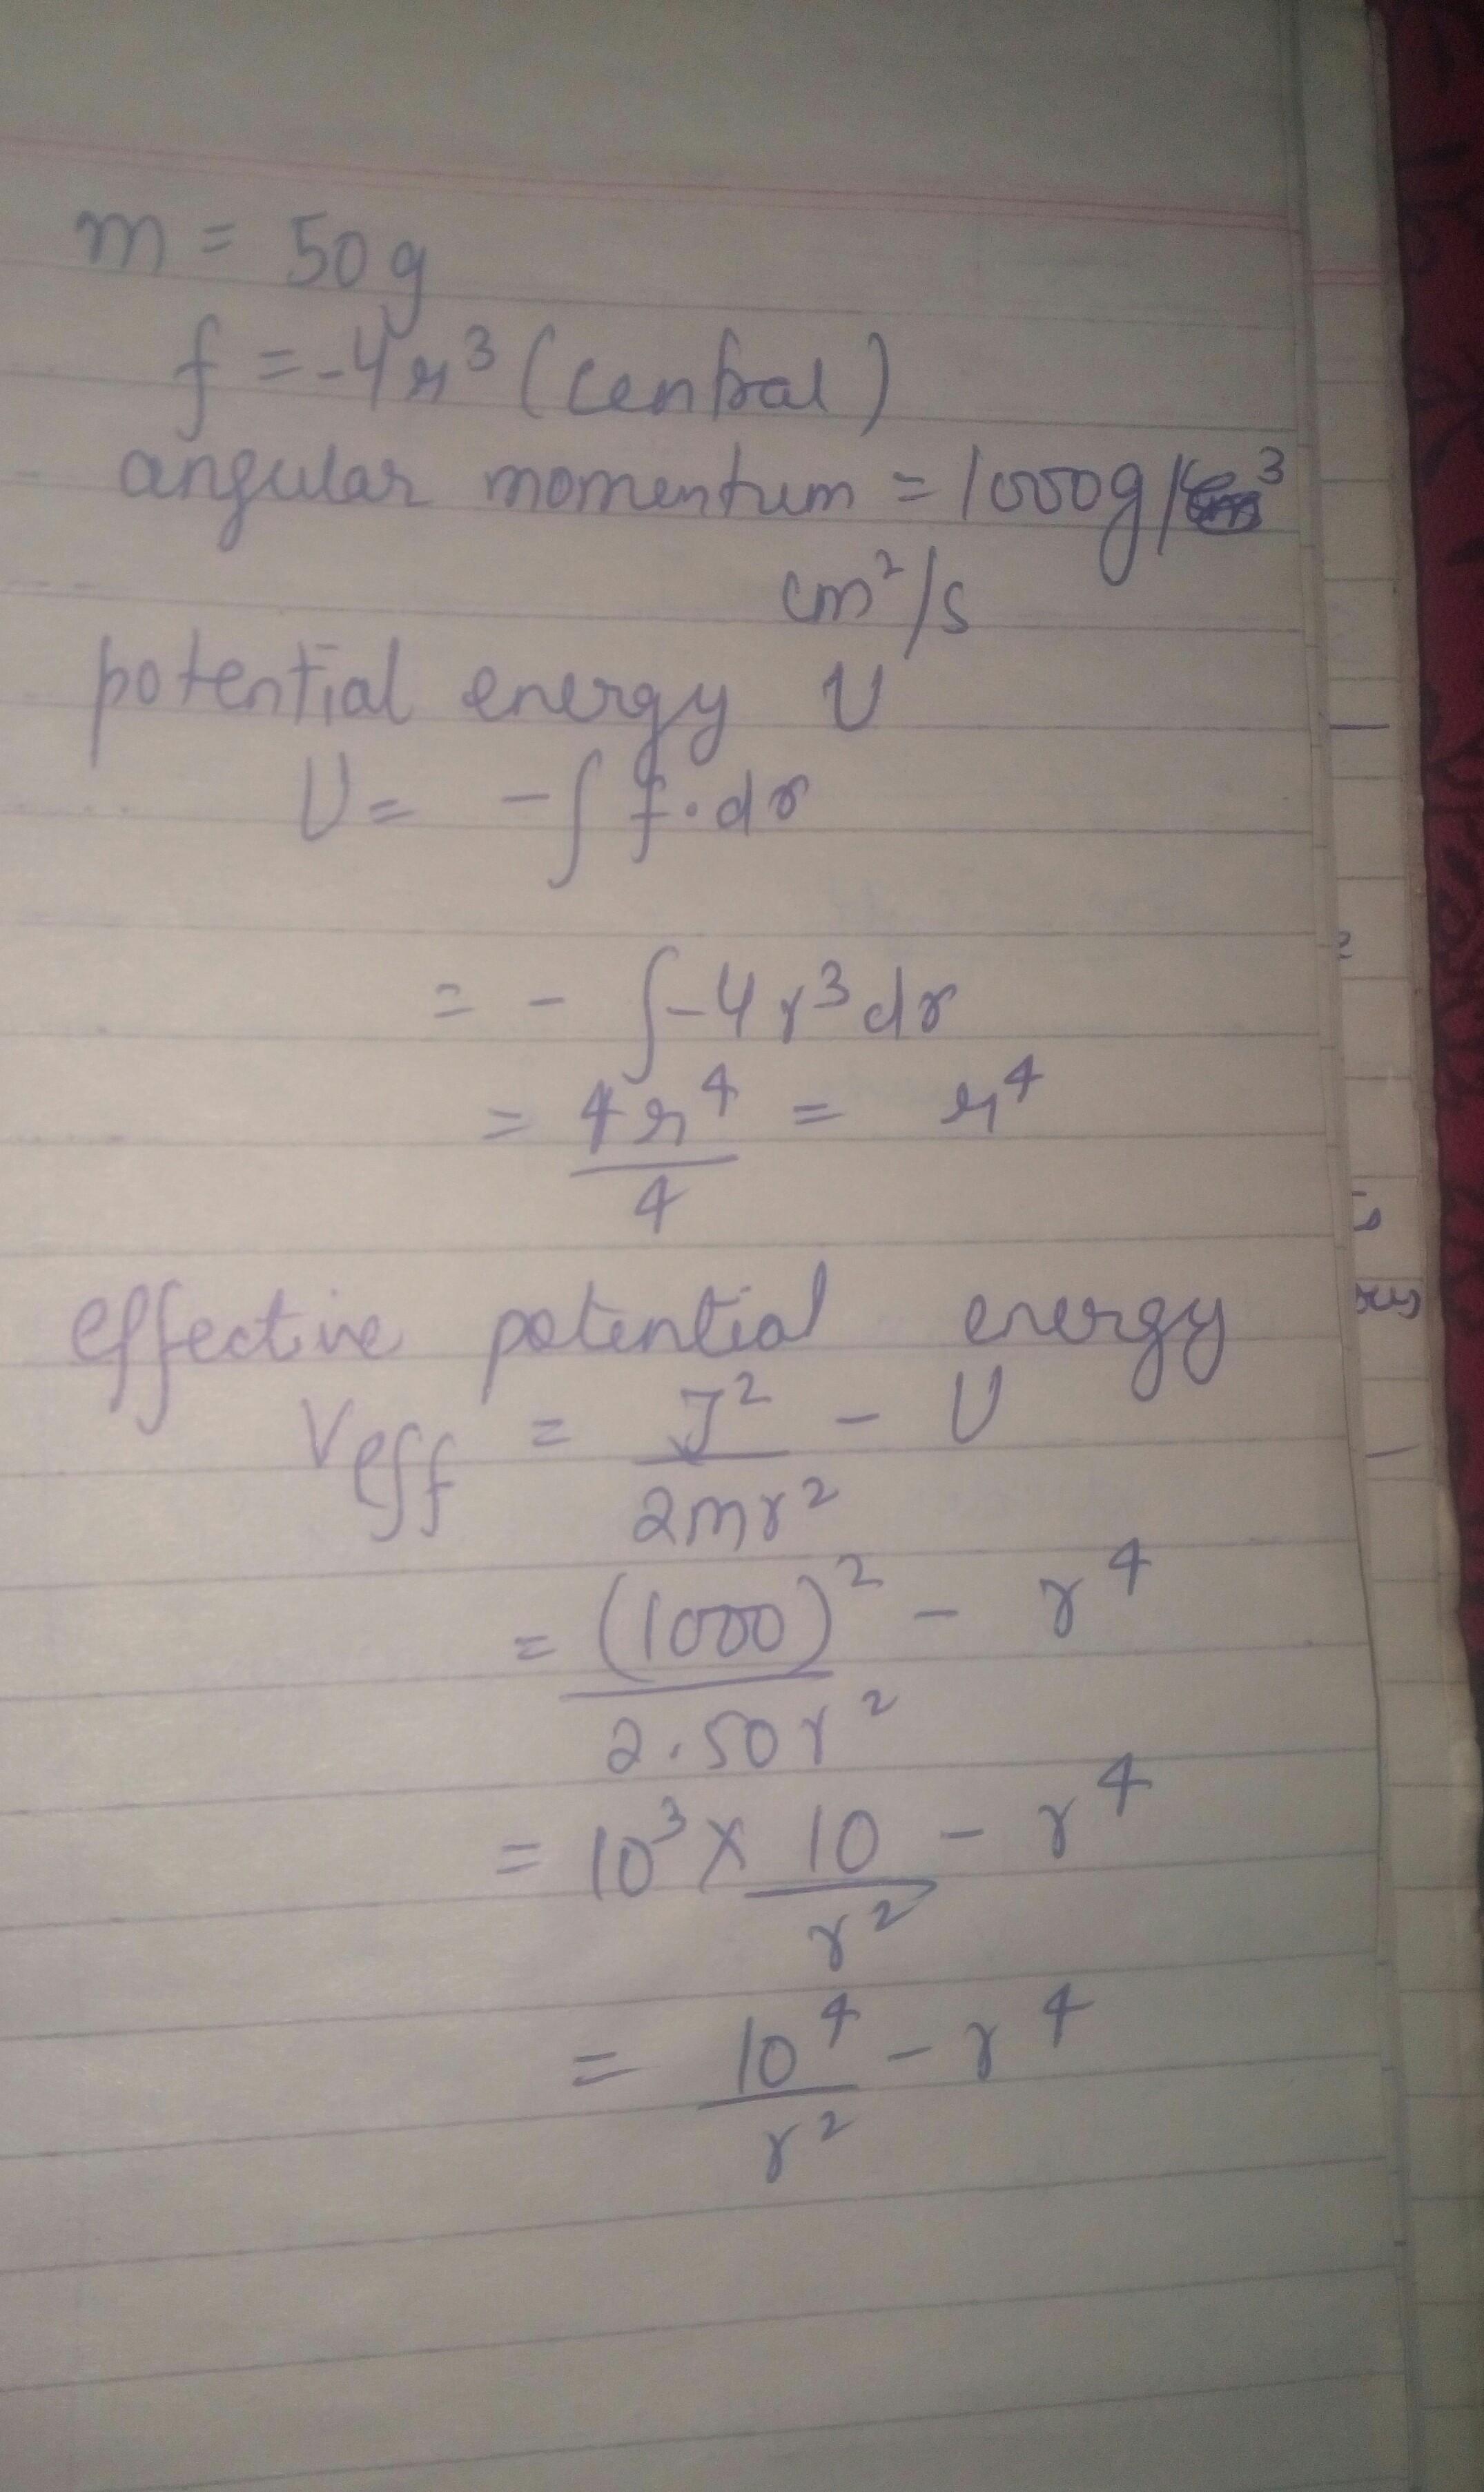 m = 50g
f = -4r³ (central)
angular momentum = 1000g/
cm²/s
potential energy U
U = -∫ f.dr
= - ∫-4r³dr
= 4r⁴/4 = r⁴
effective potential energy
Veff = J²/2mr² - U
= (1000)²/2.50r² - r⁴
= 10³ × 10/r² - r⁴
= 10⁴/r² - r⁴